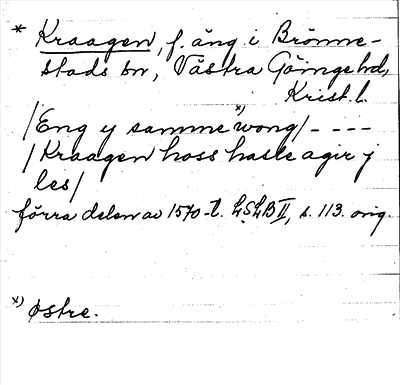 * Kraagen, f. äng i Brönne-
stads sn, Västra Göinge hd,
Krist. l.
/Eng y samme x) wong/ - - - -
/Kraagen hoss hasle agir j
les/
förra delen av 1570-t. LSLB II, s. 113. orig.
x) østre.